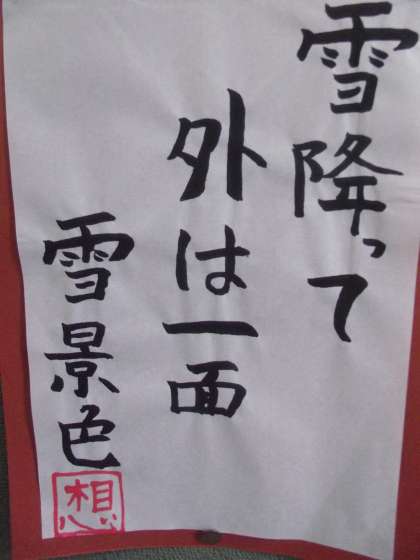 雪降って
外は一面
雪景色
想